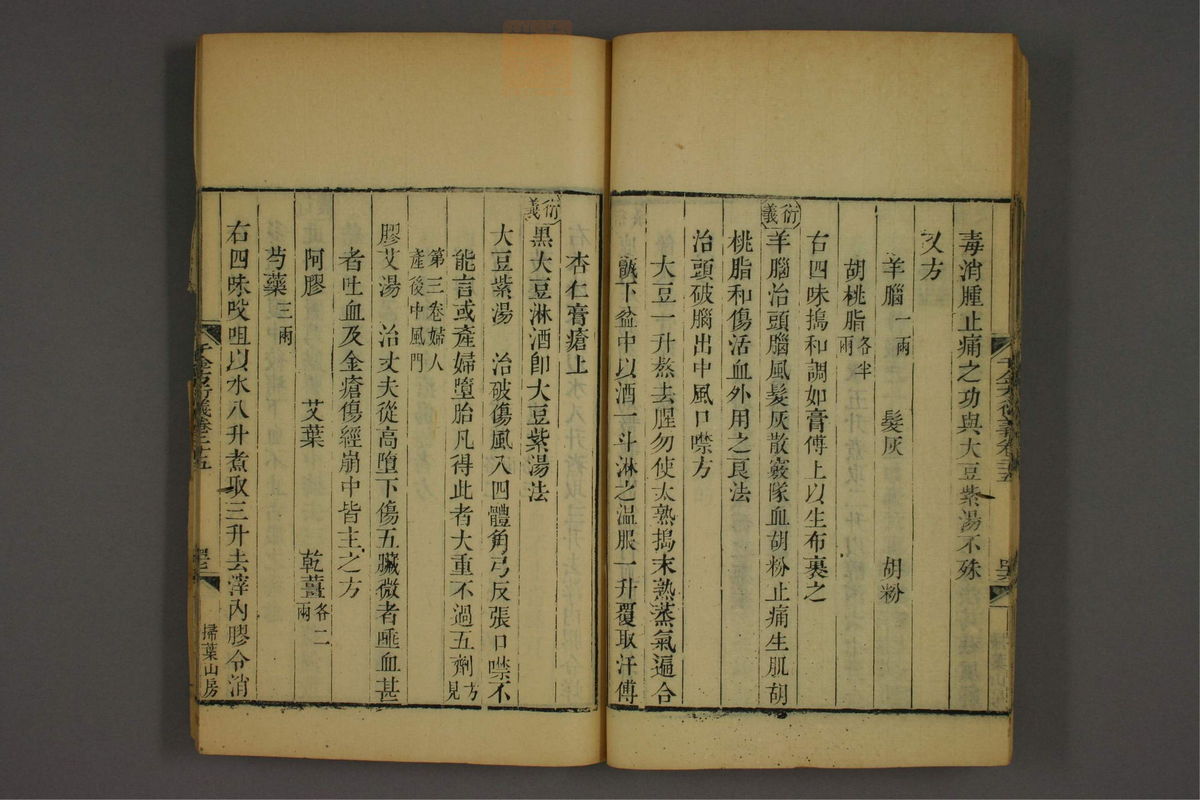 毒消腫止痛之功與大豆紫湯不殊
又方
羊腦一兩　髮灰　胡粉
胡桃脂各半兩
右四味搗和調如膏傅上以生布裹之
衍義
羊腦治頭腦風髮灰散竅隊血胡粉止痛生肌胡
桃脂和傷活血外用之良法
治頭破腦出中風口噤方
大豆一升熬去腥勿使太熟搗末熟蒸氣遍合
甑下盆中以酒一斗淋之温服一升覆取汗傅
杏仁膏瘡上
衍義
黑大豆淋酒卽大豆紫湯法
大豆紫湯　治破傷風入四體角弓反張口噤不
能言或產婦墮胎凡得此者大重不過五劑方見
第三卷婦人
產後中風門
膠艾湯　治丈夫從高墮下傷五臟微者唾血甚
者吐血及金瘡傷經崩中皆主之方
阿膠　艾葉　乾薑各二兩
芍藥三兩
右四味㕮咀以水八升煮取三升去滓內膠令消
千金方衍義卷二十五
掃葉山房